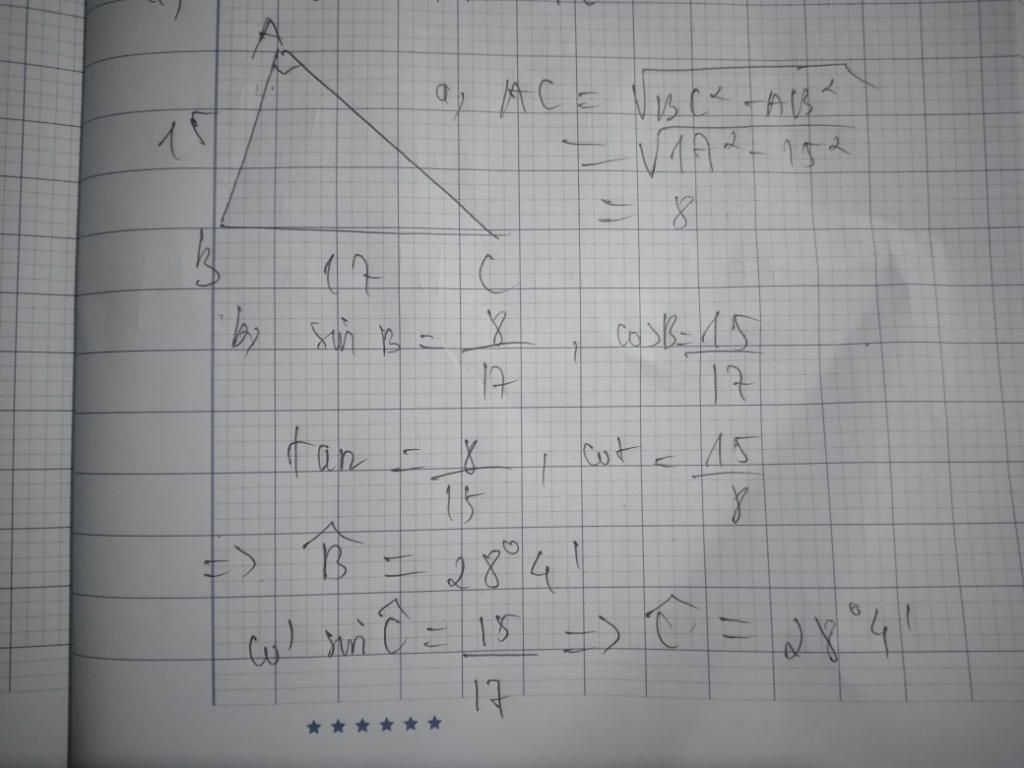 A
15
B 17 C
a, AC = √BC² - AB²
= √17² - 15²
= 8
b, sin B = 8/17, cosB = 15/17
tan = 8/15, cot = 15/8
=> B̂ = 28°4'
có sin Ĉ = 15/17 => Ĉ = 28°4'